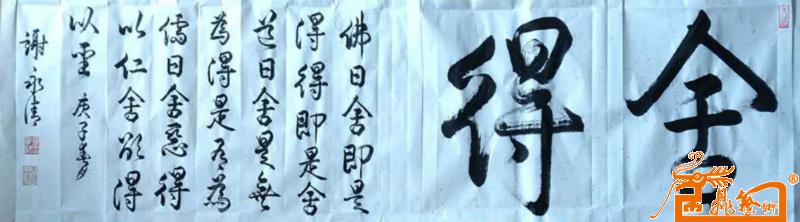 舍得
佛曰舍即是
得得即是舍
道曰舍是無
為得是有為
儒曰舍惡得
以仁舍欲得
以聖 庚子
謝永清